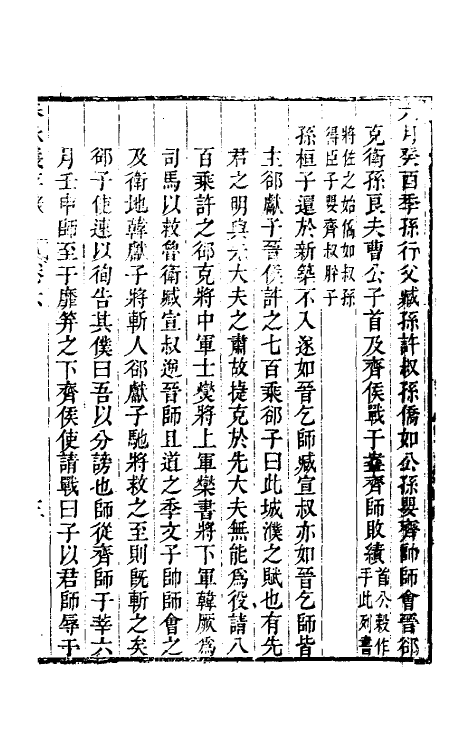 六月癸酉季孫行父臧孫許叔孫僑如公孫嬰齊帥師會晉郤
克衛孫良夫曹公子首及齊侯戰于鞌齊師敗績首公穀作手此列書
將佐之始僑如叔孫得臣子嬰齊叔肸子
孫桓子還於新築不入遂如晉乞師臧宣叔亦如晉乞師皆
主郤獻子晉侯許之七百乘郤子曰此城濮之賦也有先
君之明與先大夫之肅故捷克於先大夫無能爲役請八
百乘許之郤克將中軍士燮將上軍欒書將下軍韓厥爲
司馬以救魯衛臧宣叔逆晉師且道之季文子帥師會之
及衛地韓獻子將斬人郤獻子馳將救之至則既斬之矣
郤子使速以徇告其僕曰吾以分謗也師從齊師于莘六
月壬申師至于靡筓之下齊侯使請戰曰子以君師辱于